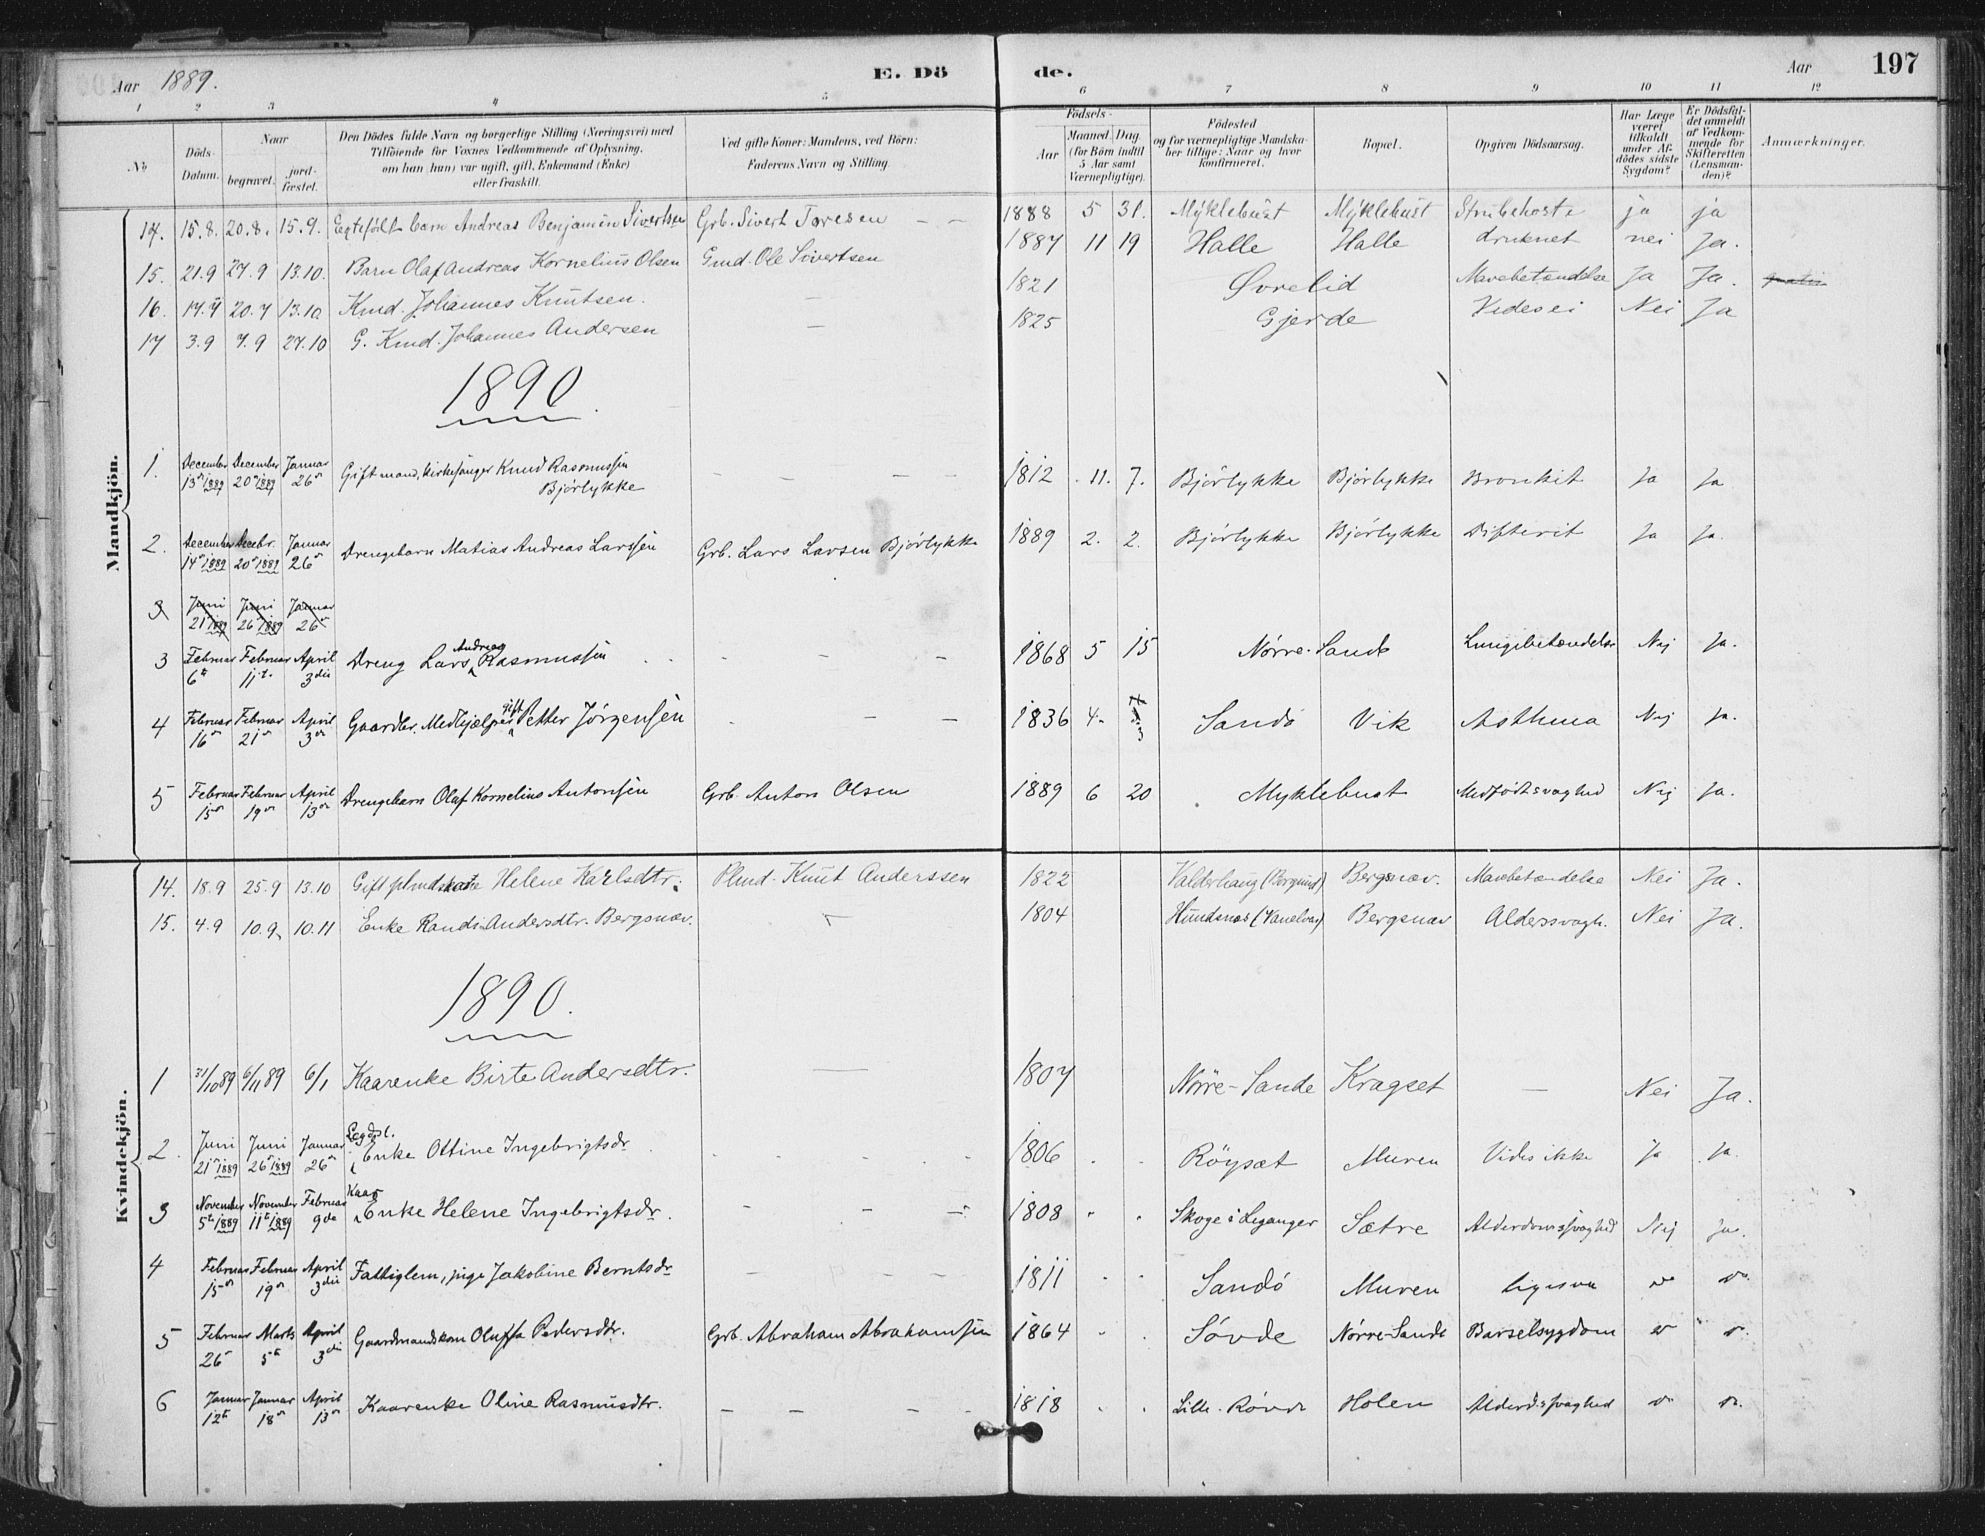 Aar 1889. E. Dö de. Aar 197
1 2 3 4 5 6 7 8 9 10 11 12
No
Döds-Datum.
Naar begravet. jordfæstet.
Den Dödes fulde Navn og borgerlige Stilling (Næringsvei) med Tilföiende for Voxnes Vedkommende af Oplysning, om han (hun) var ugift, gift, Enkemand (Enke) eller fraskilt.
Ved gifte Koner: Mandens, ved Börn: Faderens Navn og Stilling.
Födsels- Aar Maaned Dag (for Börn indtil 5 Aar samt Værnepligtige).
Födested og for værnepligtige Mandskaber tillige: Naar og hvor konfirmeret.
Bopæl.
Opgiven Dödsaarsag.
Har Læge været tilkaldt under Afdödes sidste Sygdom?
Er Dödsfaldet anmeldt af Vedkommende for Skifteretten (Lensmanden)?
Anmærkninger.
Mandkjön.
14. 15.8. 20.8. 15.9. Egtefödt barn Andreas Benjamin Sivertsen Grb. Sivert Toresen 1888 5 31. Myklebust Myklebust Strubehoste ja ja
15. 21.9 27.9 13.10. Barn Olaf Andreas Kornelius Olsen Gmd. Ole Sivertsen 1887 11 19 Halle Halle druknet nei Ja.
16. 20.7 13.10 Kmd. Johannes Knutsen. — 1821 Øvrelid Mavebetændelse Ja Ja.
17 3.9 7.9 27.10 G. Kmd. Johannes Andersen — 1825 Gjerde Videsei Nei Ja
1890.
1. December 13de 1889 December 20de 1889 Januar 26de Gift mand, kirkesanger Knud Rasmussen Bjørlykke — — — 1812 11. 7. Bjørlykke Bjørlykke Bronkit Ja Ja
2. December 14de 1889 Decbr. 20de 1889 Januar 26de Drengebarn Matias Andreas Larssen Grb. Lars Larsen Bjørlykke 1889 2. 2. Bjørlykke Bjørlykke Difterit Ja Ja.
3 Juni 21 1889 Juni 26 1889 Januar 26
3 Februar 6te Februar 11te April 3die Dreng Lars Andreas Rasmussen — — 1868 5 15 Nørre-Sande Lungebetændelse Nej Ja.
4 Februar 16de Februar 21de April 3die Gaardbr. Medhjælper gift Petter Jørgensen — — 1836 4. Sandö Vik Asthma Nej Ja.
5 Februar 15de Februar 19de April 13de Drengebarn Olaf Kornelius Antonsen Grb. Anton Olsen 1889 6 20 Myklebust Medfødt svaghed Nej Ja.
Kvindekjön.
14. 18.9 25.9 13.10 Gift Helene Karlsdtr. Plmd. Knut Anderssen 1822 Valderhaug (Borgund) Bergsnæv. Mavebetændelse Nei Ja.
15. 4.9 10.9 10.11 Enke Randi Andersdtr. Bergsnæv. — 1804 Hundsnes (Vanelven) Bergsnæv Alderssvagh. Nei Ja.
1890.
1 31/10 89 6/11 89 6/1 Kaarenke Birte Andersdtr. — 1807 Nörre-Sande Kragset — Nei Ja.
2. Juni 21de 1889 Juni 26de 1889 Januar 26de Legdsl. Enke Ottine Ingebrigtsdr 1806 Röysæt Muren Vides ikke Ja Ja.
3 November 5te 1889 November 11te 1889 Februar 9de Kaar Enke Helene Ingebrigtsdr. — — — 1808 Skoge i Leganger Sætre Alderdomssvaghed Nej Ja.
4 Februar 15de Februar 19de April 3die Fattiglem, pige Jakobine Berntsdr — — — 1811 Sandö Muren ligesaa
5 Februar 26de Marts 5te April 3die Gaardmandskone Oluffa Pedersdtr. Grb. Abraham Abrahamsen 1864 Søvde Nørre-Sande Barselsygdom
6 Januar 12te Januar 18de April 13de Kaarenke Oline Rasmusdtr. — — — — 1818 Lille-Røvde Holen Alderdssvaghed